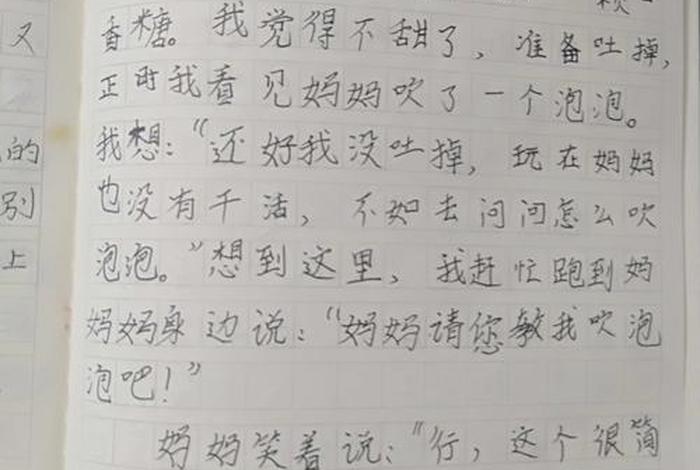 香糖。我觉得不甜了，准备吐掉，
正时我看见妈妈吹了一个泡泡。
我想：“还好我没吐掉，玩在妈妈
也没有干活，不如去问问怎么吹
泡泡。”想到这里，我赶忙跑到妈
妈妈身边说：“妈妈请您教我吹泡
泡吧！”
妈妈笑着说：“行，这个很简
又
的
别
上